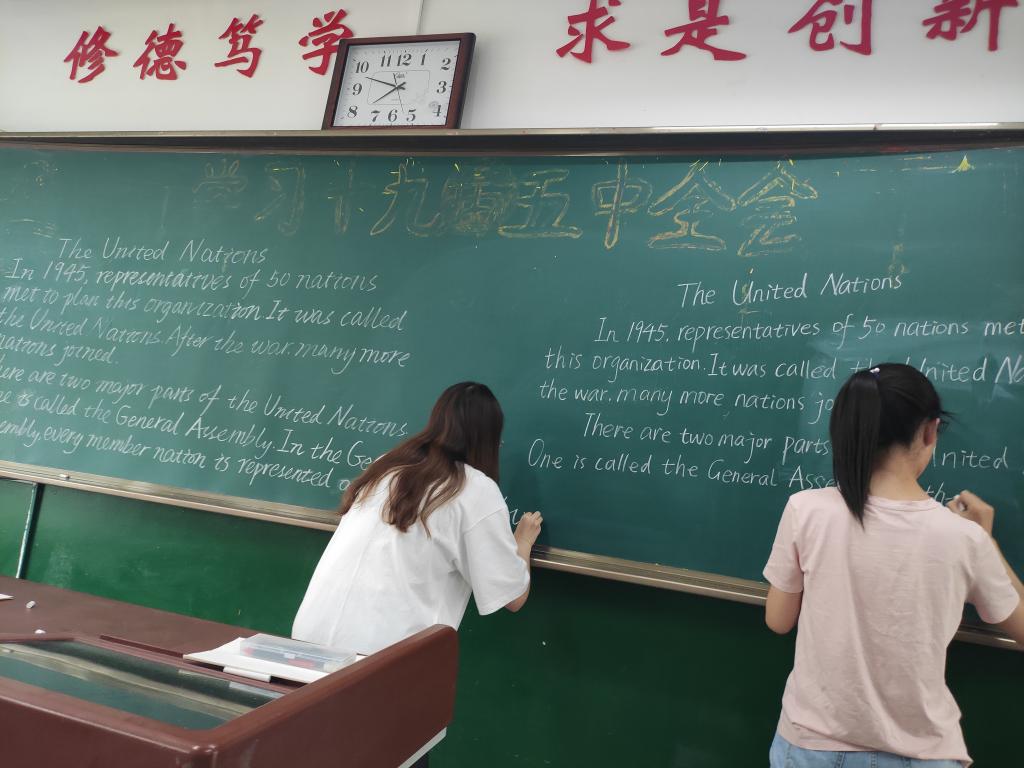 修德笃学
求是创新
11 12 1
10 2
9 3
8 4
7 6 5
学习十九届五中全会
The United Nations
In 1945, representatives of 50 nations
met to plan this organization. It was called
the United Nations. After the war, many more
nations joined.
ere are two major parts of the United Nations
ne is called the General Assembly. In the Ge
embly, every member nation is represented
The United Nations
In 1945, representatives of 50 nations met
this organization. It was called the United Na
the war, many more nations jo
There are two major parts United
One is called the General Asse the